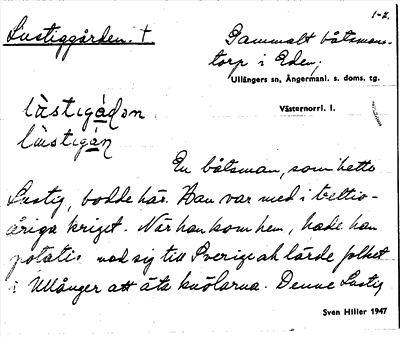 1-2.
Lustiggården. †
Gammalt båtsmans-
torp i Eden,
Ullångers sn, Ångermanl. s. doms. tg.
Västernorrl. l.
En båtsman, som hette
Lustig, bodde här. Han var med i trettio-
åriga kriget. När han kom hem, hade han
potatis med sig till Sverige ah lärde folket
i Ullånger att äta knölarna. Denne Lustig
Sven Hiller 1947